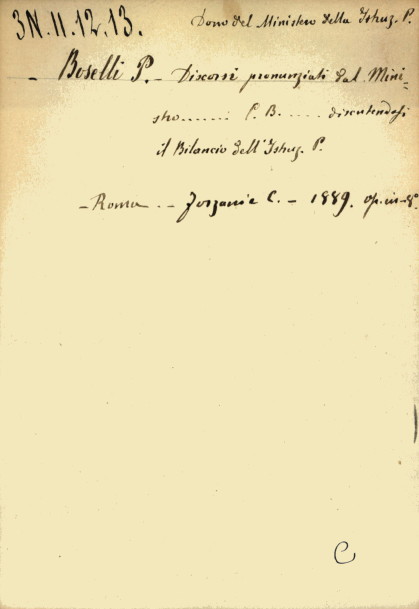 3N.11.12.13.
Dono del Ministero della Istruz. P.
- Boselli P. - Discorsi pronunziati dal Mini=
stro....... P. B. ..... discutendosi
il Bilancio dell'Istruz. P.
- Roma. - Forzani e C. - 1889. op. in-8°.
C